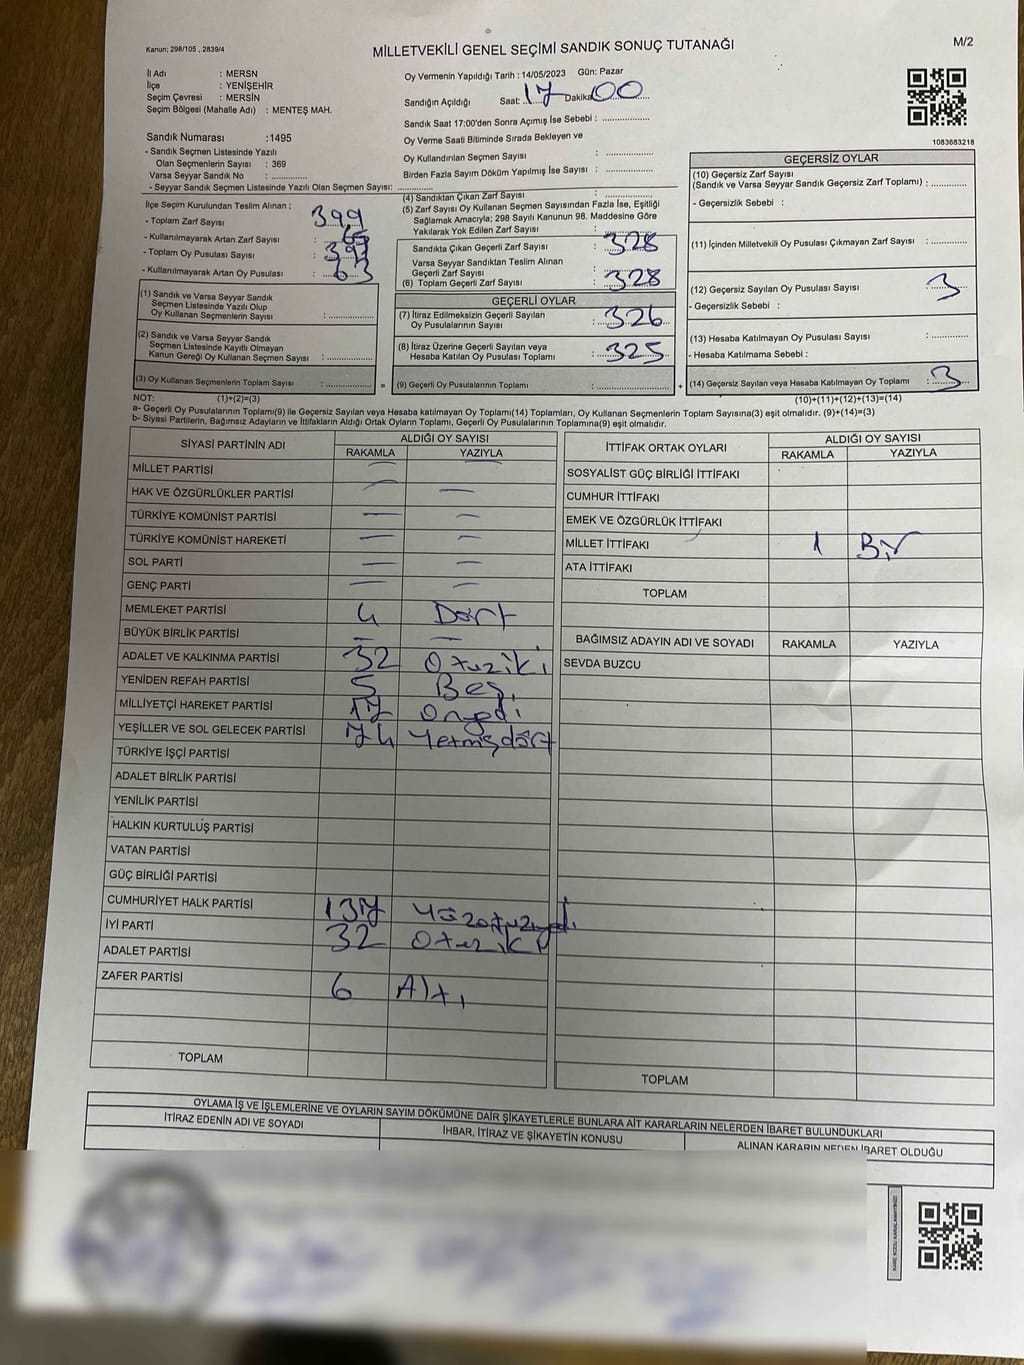 Kanun; 298/105 , 2839/4
MİLLETVEKİLİ GENEL SEÇİMİ SANDIK SONUÇ TUTANAĞI
M/2
İl Adı : MERSN
İlçe : YENİŞEHİR
Seçim Çevresi : MERSİN
Seçim Bölgesi (Mahalle Adı) : MENTEŞ MAH.
Sandık Numarası :1495
- Sandık Seçmen Listesinde Yazılı
Olan Seçmenlerin Sayısı : 369
Varsa Seyyar Sandık No : ..............
- Seyyar Sandık Seçmen Listesinde Yazılı Olan Seçmen Sayısı: ..............
Oy Vermenin Yapıldığı Tarih : 14/05/2023 Gün: Pazar
Sandığın Açıldığı Saat: 17 Dakika 00
Sandık Saat 17:00'den Sonra Açımış İse Sebebi : ..............
Oy Verme Saati Bitiminde Sırada Bekleyen ve
Oy Kullandırılan Seçmen Sayısı : ..............
Birden Fazla Sayım Döküm Yapılmış İse Sayısı : ..............
1083683218
İlçe Seçim Kurulundan Teslim Alınan ;
- Toplam Zarf Sayısı : 399
- Kullanılmayarak Artan Zarf Sayısı :
- Toplam Oy Pusulası Sayısı :
- Kullanılmayarak Artan Oy Pusulası : 63
(1) Sandık ve Varsa Seyyar Sandık
Seçmen Listesinde Yazılı Olup
Oy Kullanan Seçmenlerin Sayısı : ..............
(2) Sandık ve Varsa Seyyar Sandık
Seçmen Listesinde Kayıtlı Olmayan
Kanun Gereği Oy Kullanan Seçmen Sayısı : ..............
(3) Oy Kullanan Seçmenlerin Toplam Sayısı : .............. =
(4) Sandıktan Çıkan Zarf Sayısı : ..............
(5) Zarf Sayısı Oy Kullanan Seçmen Sayısından Fazla İse, Eşitliği
Sağlamak Amacıyla; 298 Sayılı Kanunun 98. Maddesine Göre
Yakılarak Yok Edilen Zarf Sayısı :
Sandıkta Çıkan Geçerli Zarf Sayısı : 328
Varsa Seyyar Sandıktan Teslim Alınan
Geçerli Zarf Sayısı :
(6) Toplam Geçerli Zarf Sayısı : 328
GEÇERLİ OYLAR
(7) İtiraz Edilmeksizin Geçerli Sayılan
Oy Pusulalarının Sayısı : 326
(8) İtiraz Üzerine Geçerli Sayılan veya
Hesaba Katılan Oy Pusulası Toplamı : 325
(9) Geçerli Oy Pusulalarının Toplamı : .............. +
GEÇERSİZ OYLAR
(10) Geçersiz Zarf Sayısı
(Sandık ve Varsa Seyyar Sandık Geçersiz Zarf Toplamı) : ..............
- Geçersizlik Sebebi :
(11) İçinden Milletvekili Oy Pusulası Çıkmayan Zarf Sayısı : ..............
(12) Geçersiz Sayılan Oy Pusulası Sayısı : 3
- Geçersizlik Sebebi :
(13) Hesaba Katılmayan Oy Pusulası Sayısı : ..............
- Hesaba Katılmama Sebebi :
(14) Geçersiz Sayılan veya Hesaba Katılmayan Oy Toplamı : 3
NOT: (1)+(2)=(3) (10)+(11)+(12)+(13)=(14)
a- Geçerli Oy Pusulalarının Toplamı(9) ile Geçersiz Sayılan veya Hesaba katılmayan Oy Toplamı(14) Toplamları, Oy Kullanan Seçmenlerin Toplam Sayısına(3) eşit olmalıdır. (9)+(14)=(3)
b- Siyasi Partilerin, Bağımsız Adayların ve İttifakların Aldığı Ortak Oyların Toplamı, Geçerli Oy Pusulalarının Toplamına(9) eşit olmalıdır.
SİYASİ PARTİNİN ADI ALDIĞI OY SAYISI
RAKAMLA YAZIYLA
MİLLET PARTİSİ — —
HAK VE ÖZGÜRLÜKLER PARTİSİ — —
TÜRKİYE KOMÜNİST PARTİSİ — —
TÜRKİYE KOMÜNİST HAREKETİ — —
SOL PARTİ — —
GENÇ PARTİ — —
MEMLEKET PARTİSİ 4 Dört
BÜYÜK BİRLİK PARTİSİ — —
ADALET VE KALKINMA PARTİSİ 32 Otuziki
YENİDEN REFAH PARTİSİ 5 Beş
MİLLİYETÇİ HAREKET PARTİSİ 17 Onyedi
YEŞİLLER VE SOL GELECEK PARTİSİ 74 Yetmişdört
TÜRKİYE İŞÇİ PARTİSİ
ADALET BİRLİK PARTİSİ
YENİLİK PARTİSİ
HALKIN KURTULUŞ PARTİSİ
VATAN PARTİSİ
GÜÇ BİRLİĞİ PARTİSİ
CUMHURİYET HALK PARTİSİ 137 Yüzotuzyedi
İYİ PARTİ 32 Otuziki
ADALET PARTİSİ
ZAFER PARTİSİ 6 Altı
TOPLAM
İTTİFAK ORTAK OYLARI ALDIĞI OY SAYISI
RAKAMLA YAZIYLA
SOSYALİST GÜÇ BİRLİĞİ İTTİFAKI
CUMHUR İTTİFAKI
EMEK VE ÖZGÜRLÜK İTTİFAKI
MİLLET İTTİFAKI 1 Bir
ATA İTTİFAKI
TOPLAM
BAĞIMSIZ ADAYIN ADI VE SOYADI RAKAMLA YAZIYLA
SEVDA BUZCU
TOPLAM
OYLAMA İŞ VE İŞLEMLERİNE VE OYLARIN SAYIM DÖKÜMÜNE DAİR ŞİKAYETLERLE BUNLARA AİT KARARLARIN NELERDEN İBARET BULUNDUKLARI
İTİRAZ EDENİN ADI VE SOYADI
İHBAR, İTİRAZ VE ŞİKAYETİN KONUSU
ALINAN KARARIN NEDEN İBARET OLDUĞU